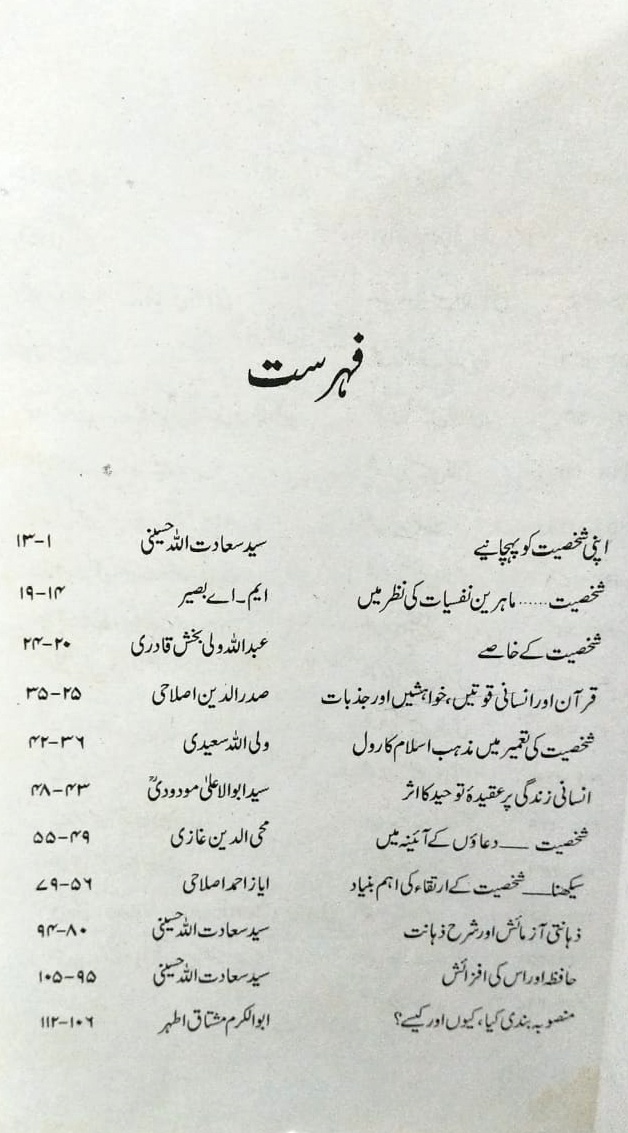 فہرست
اپنی شخصیت کو پہچانیے سید سعادت اللہ حسینی ۱-۱۳
شخصیت...... ماہرین نفسیات کی نظر میں ایم۔اے بصیر ۱۴-۱۹
شخصیت کے خاصے عبداللہ ولی بخش قادری ۲۰-۲۴
قرآن اور انسانی قوتیں، خواہشیں اور جذبات صدرالدین اصلاحی ۲۵-۳۵
شخصیت کی تعمیر میں مذہب اسلام کا رول ولی اللہ سعیدی ۳۶-۴۲
انسانی زندگی پر عقیدۂ توحید کا اثر سید ابوالاعلیٰ مودودیؒ ۴۳-۴۸
شخصیت ـــ دعاؤں کے آئینہ میں محی الدین غازی ۴۹-۵۵
سیکھنا ـــ شخصیت کے ارتقاء کی اہم بنیاد ایاز احمد اصلاحی ۵۶-۷۹
ذہانتی آزمائش اور شرح ذہانت سید سعادت اللہ حسینی ۸۰-۹۴
حافظہ اور اس کی افزائش سید سعادت اللہ حسینی ۹۵-۱۰۵
منصوبہ بندی کیا، کیوں اور کیسے؟ ابوالکرم مشتاق اطہر ۱۰۶-۱۱۲